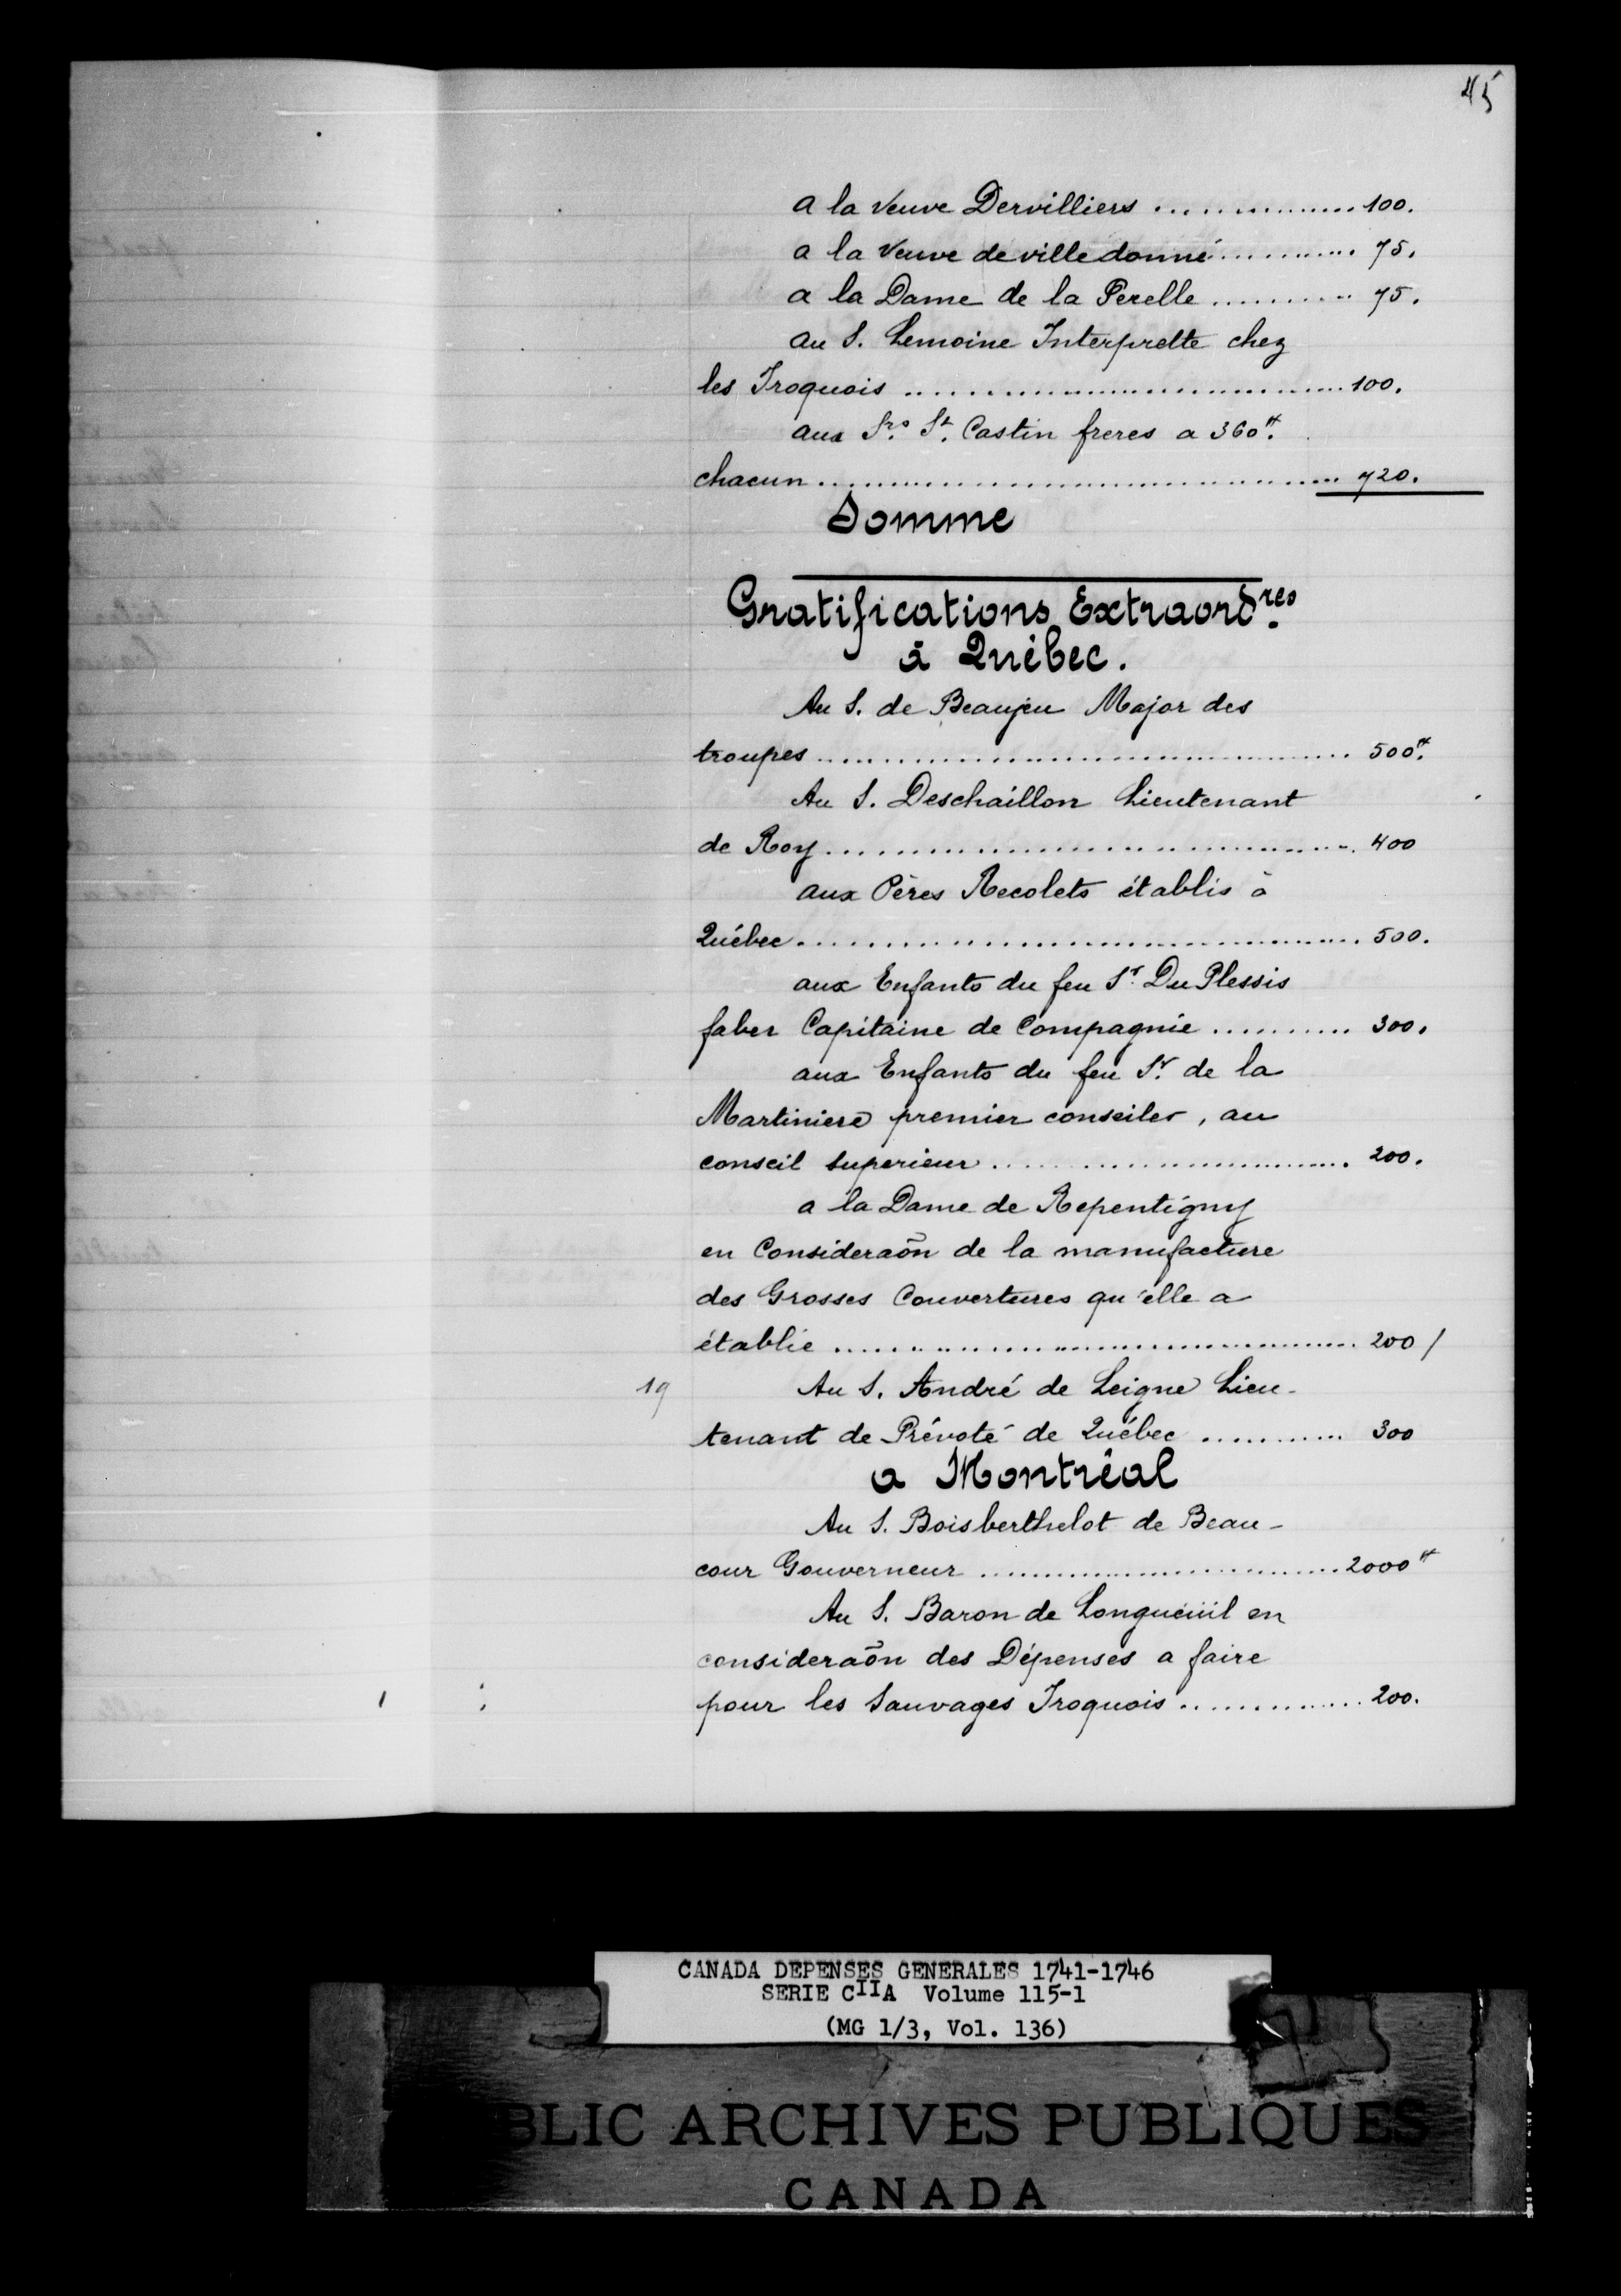 45
a la Veuve Dervilliers ............... 100.
a la Veuve devilledonné ........... 75.
a la Dame de la Perelle ........... 75.
au S. Lemoine Interprette chez
les Iroquois ................................ 100.
aux Srs. St. Castin freres a 360#.
chacun ...................................... 720.
Somme
Gratifications Extraordres.
à Québec.
Au S. de Beaujeu Major des
troupes ...................................... 500#.
Au S. Deschaillon Lieutenant
de Roy ...................................... 400
aux Pères Recolets établis à
Québec ...................................... 500.
aux Enfants du feu Sr. Du Plessis
faber Capitaine de Compagnie .......... 300.
aux Enfants du feu Sr. de la
Martiniere premier conseiler, au
conseil superieur .......................... 200.
a la Dame de Repentigny
en Consideraõn de la manufacture
des Grosses Couvertures qu'elle a
établie ...................................... 200 /
19 Au S. André de Leigne Lieu-
tenant de Prévoté de Québec ........... 300
a Montréal
Au S. Boisberthelot de Beau-
cour Gouverneur .......................... 2000#
Au S. Baron de Longueüil en
consideraõn des Dépenses a faire
pour les Sauvages Iroquois .............. 200.
CANADA DEPENSES GENERALES 1741-1746
SERIE CIIA Volume 115-1
(MG 1/3, Vol. 136)
BLIC ARCHIVES PUBLIQUES
CANADA